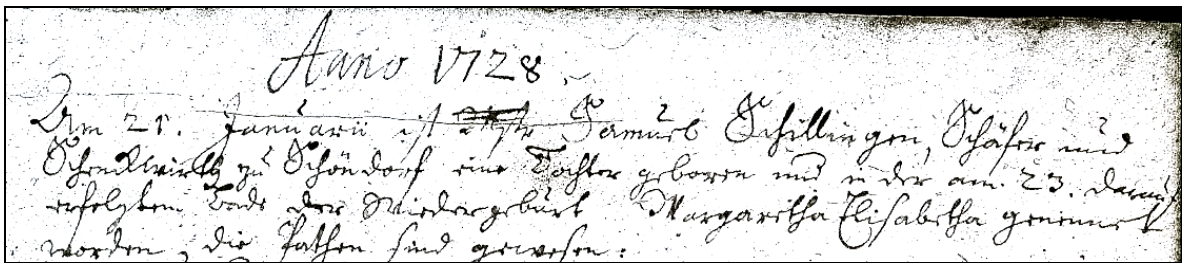 Anno 1728.
Am 21. Januarii ist Samuel Schillingen, Schäfer und
Schenckwirth zu Schöndorf eine Tochter geboren und in der am. 23. darauf
erfolgtem Bade der Wiedergeburt Margaretha Elisabetha genennet
worden, die Pathen sind gewesen: